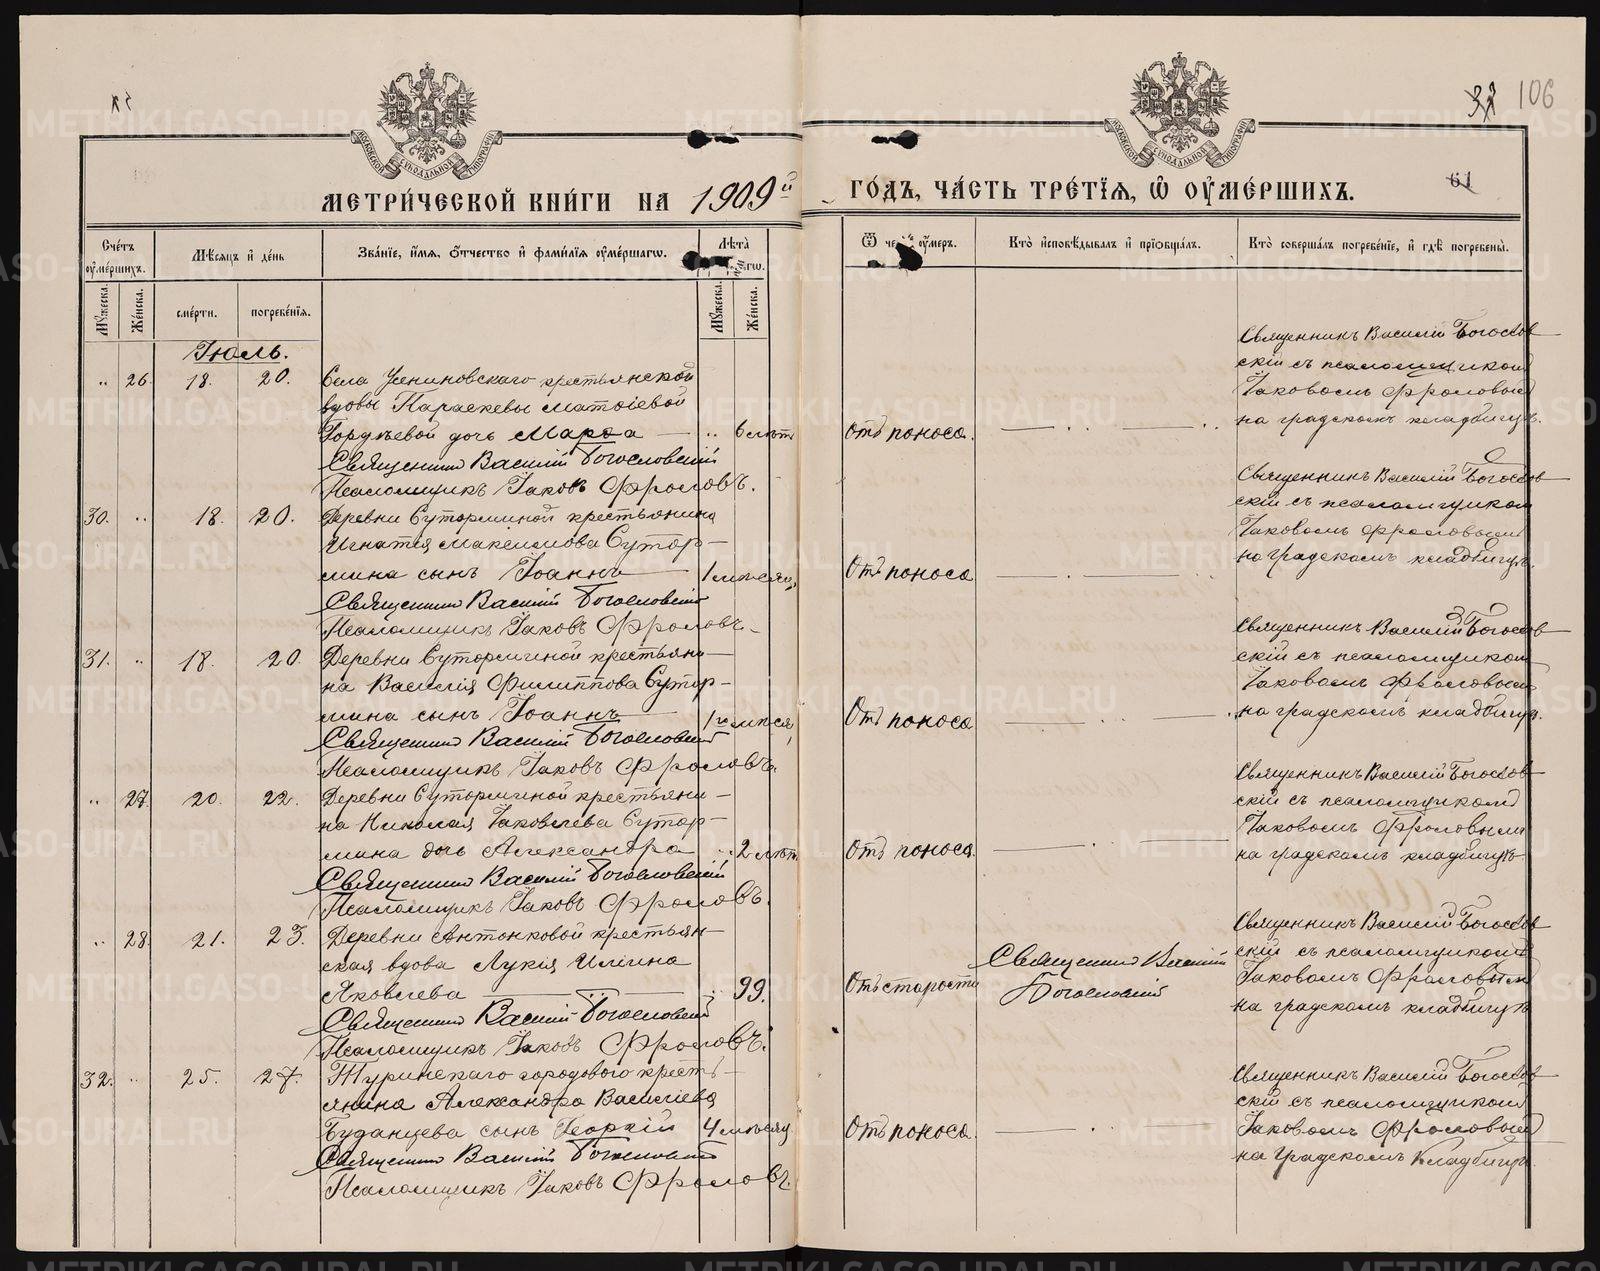 106
61
МЕТРИ́ЧЕСКОЙ КНИ́ГИ НА 1909й ГО́ДЪ, ЧА́СТЬ ТРЕ́ТЇѦ, Ѽ ОУ҆МЕ́РШИХЪ.
Сче́тъ оу҆ме́ршихъ.
Мѣ́сѧцъ и҆ де́нь
Зва́нїе, и҆́мѧ, ѻ҆́тчество и҆ фами́лїѧ оу҆ме́ршагѡ.
Лѣ́та
Ѿ чегѡ̀ оу҆́меръ.
Кто̀ и҆сповѣ́дывалъ и҆ прїѻбща́лъ.
Кто̀ соверша́лъ погребе́нїе, и҆ гдѣ̀ погребены̀.
Мꙋ́жеска.
Же́нска.
сме́рти.
погребе́нїѧ.
Мꙋ́жеска.
Же́нска.
Іюль.
„ 26. 18. 20.
Села Усениновскаго крестьянской
вдовы Параскевы Матѳіевой
Гордѣевой дочь Марѳа — „ 6 лѣтъ
Священникъ Василій Богословскій
Псаломщикъ Іаковъ Фроловъ.
Отъ поноса.
Священникъ Василій Богослов
скій съ псаломщикомъ
Іаковомъ Фроловымъ
на градскомъ кладбищѣ.
30. „ 18. 20.
Деревни Суторминой крестьянина
Игнатія Максимова Сутор-
мина сынъ Іоаннъ 1 мѣсяц.
Священникъ Василій Богословскій
Псаломщикъ Іаковъ Фроловъ
Отъ поноса
Священникъ Василій Богослов
скій съ псаломщикомъ
Іаковомъ Фроловымъ
на градскомъ кладбищѣ.
31. „ 18. 20.
Деревни Суторминой крестьяни-
на Василія Филиппова Сутор-
мина сынъ Іоаннъ мѣсяц
Священникъ Василій Богословскій
Псаломщикъ Іаковъ Фроловъ.
Отъ поноса
Священникъ Василій Богослов
скій съ псаломщикомъ
Іаковомъ Фроловымъ
на градскомъ кладбищѣ.
„ 27. 20. 22.
Деревни Суторминой крестьяни-
на Николая Іаковлева Сутор-
мина дочь Александра „ 2 лѣт
Священникъ Василій Богословскій
Псаломщикъ Іаковъ Фроловъ.
Отъ поноса.
Священникъ Василій Богослов
скій съ псаломщикомъ
Іаковомъ Фроловымъ
на градскомъ кладбищѣ
„ 28. 21. 23.
Деревни Антонковой крестьян-
ская вдова Лукія Иліина
Яковлева — „ 99.
Священникъ Василій Богословскій
Псаломщикъ Іаковъ Фроловъ.
Отъ старости
Священникъ Василій
Богословскій
Священникъ Василій Богослов
скій съ псаломщикомъ
Іаковомъ Фроловымъ
на градскомъ кладбищѣ
32. „ 25. 27.
Туринскаго городового кресть-
янина Александра Василіева
Буданцева сынъ Георгій 4 мѣсяц
Священникъ Василій Богословскій
Псаломщикъ Іаковъ Фроловъ.
Отъ поноса.
Священникъ Василій Богослов
скій съ псаломщикомъ
Іаковомъ Фроловымъ
на градскомъ кладбищѣ.
METRIKI.GASO-URAL.RU